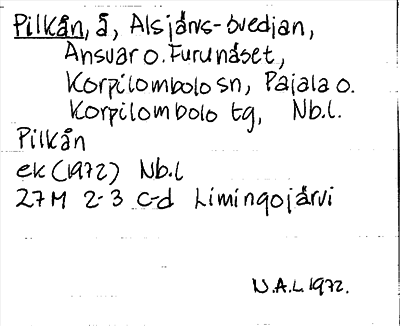 Pilkån, å, Alsjärvs-övedjan,
Ansvar o. Furunäset,
Korpilombolo sn, Pajala o.
Korpilombolo tg, Nb.l.
Pilkån
ek (1972) Nb.l
27M 2-3 c-d Limingojärvi
N.A.L. 1972.